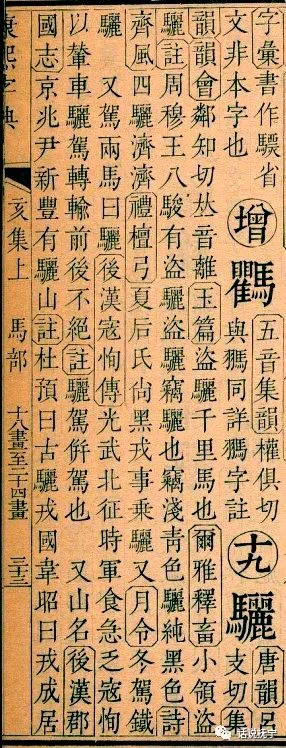 字彙書作省
文非本字也
增
五音集韻權俱切
與同詳字註
十九
驪
唐韻呂
支切集
韻韻會鄰知切𠀤音離玉篇盗驪千里馬也爾雅釋畜小領盗
驪註周穆王八駿有盗驪盗驪竊驪也竊淺青色驪純黑色詩
齊風四驪濟濟禮檀弓夏后氏尚黑戎事乗驪又月令冬駕鐵
驪 又駕兩馬曰驪後漢寇恂傳光武北征時軍食急乏寇恂
以輦車驪駕轉輸前後不絕註驪駕倂駕也 又山名後漢郡
國志京兆尹新豐有驪山註杜預曰古驪戎國韋昭曰戎成居
康熙字典 亥集上 馬部 十八畫至二十四畫 三十三
话说抚宁